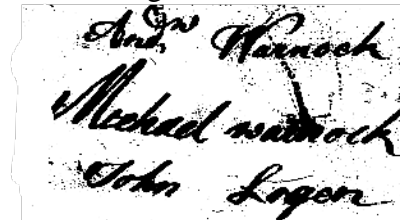 And,ʷ Warnock
Meckad warnock
John Logan